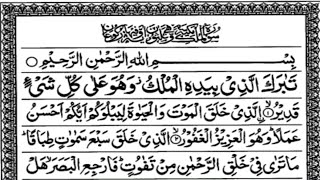 بِسْمِ اللهِ الرَّحْمٰنِ الرَّحِيْمِ
تَبٰرَكَ الَّذِیْ بِیَدِهِ الْمُلْكُ وَهُوَ عَلٰی كُلِّ شَیْءٍ
قَدِیْرُ ۙ الَّذِیْ خَلَقَ الْمَوْتَ وَالْحَیٰوةَ لِیَبْلُوَكُمْ اَیُّكُمْ اَحْسَنُ
عَمَلًا ؕ وَهُوَ الْعَزِیْزُ الْغَفُوْرُ ۙ الَّذِیْ خَلَقَ سَبْعَ سَمٰوٰتٍ طِبَاقًا ؕ
مَا تَرٰی فِیْ خَلْقِ الرَّحْمٰنِ مِنْ تَفٰوُتٍ ؕ فَارْجِعِ الْبَصَرَ ۙ هَلْ